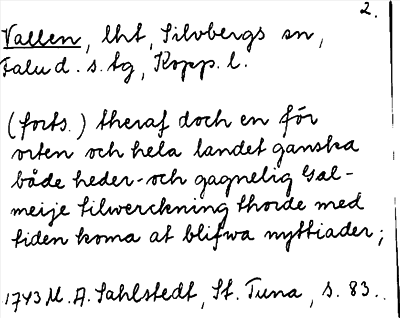 2.
Vallen, lht, Silvbergs sn,
Falu d. s. tg, Kopp. l.
(forts.) theraf doch en för
orten och hela landet ganska
både heder- och gagnelig Gal-
meije tilwerckning thorde med
tiden koma at blifwa nyttiader;
1743 M. A. Sahlstedt, St. Tuna, s. 83.